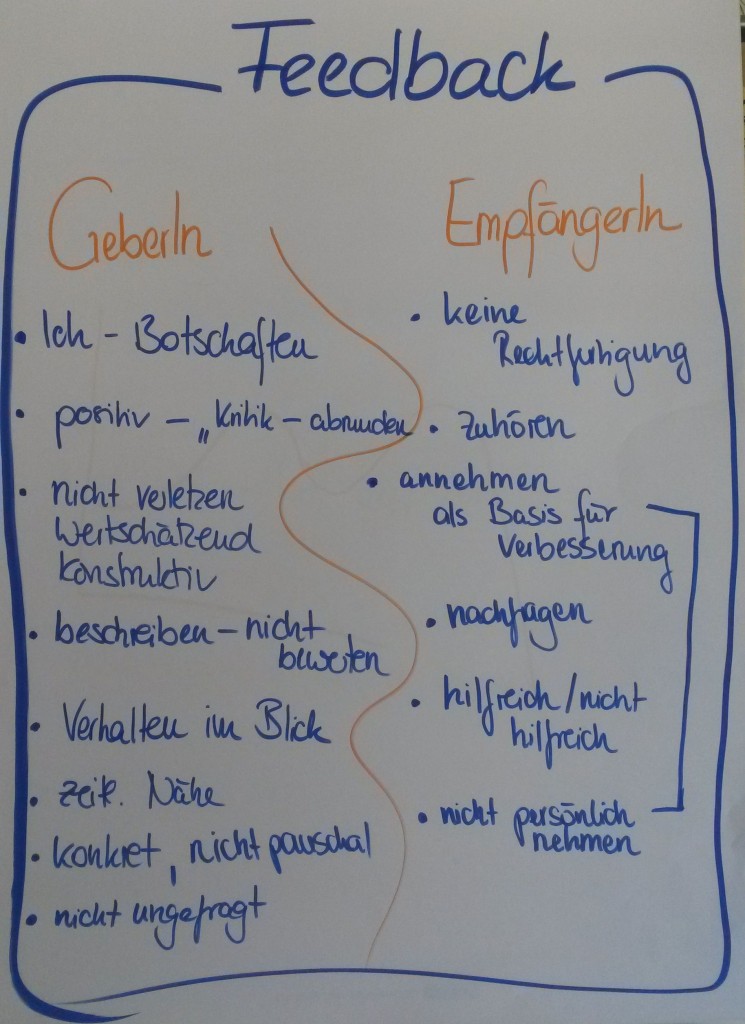 Feedback
GeberIn
• Ich – Botschaften
• positiv – „Kritik – abrunden
• nicht verletzen
wertschätzend
konstruktiv
• beschreiben – nicht
bewerten
• Verhalten im Blick
• zeitl. Nähe
• konkret, nicht pauschal
• nicht ungefragt
EmpfängerIn
• keine
Rechtfertigung
• zuhören
• annehmen
als Basis für
Verbesserung
• nachfragen
• hilfreich/nicht
hilfreich
• nicht persönlich
nehmen